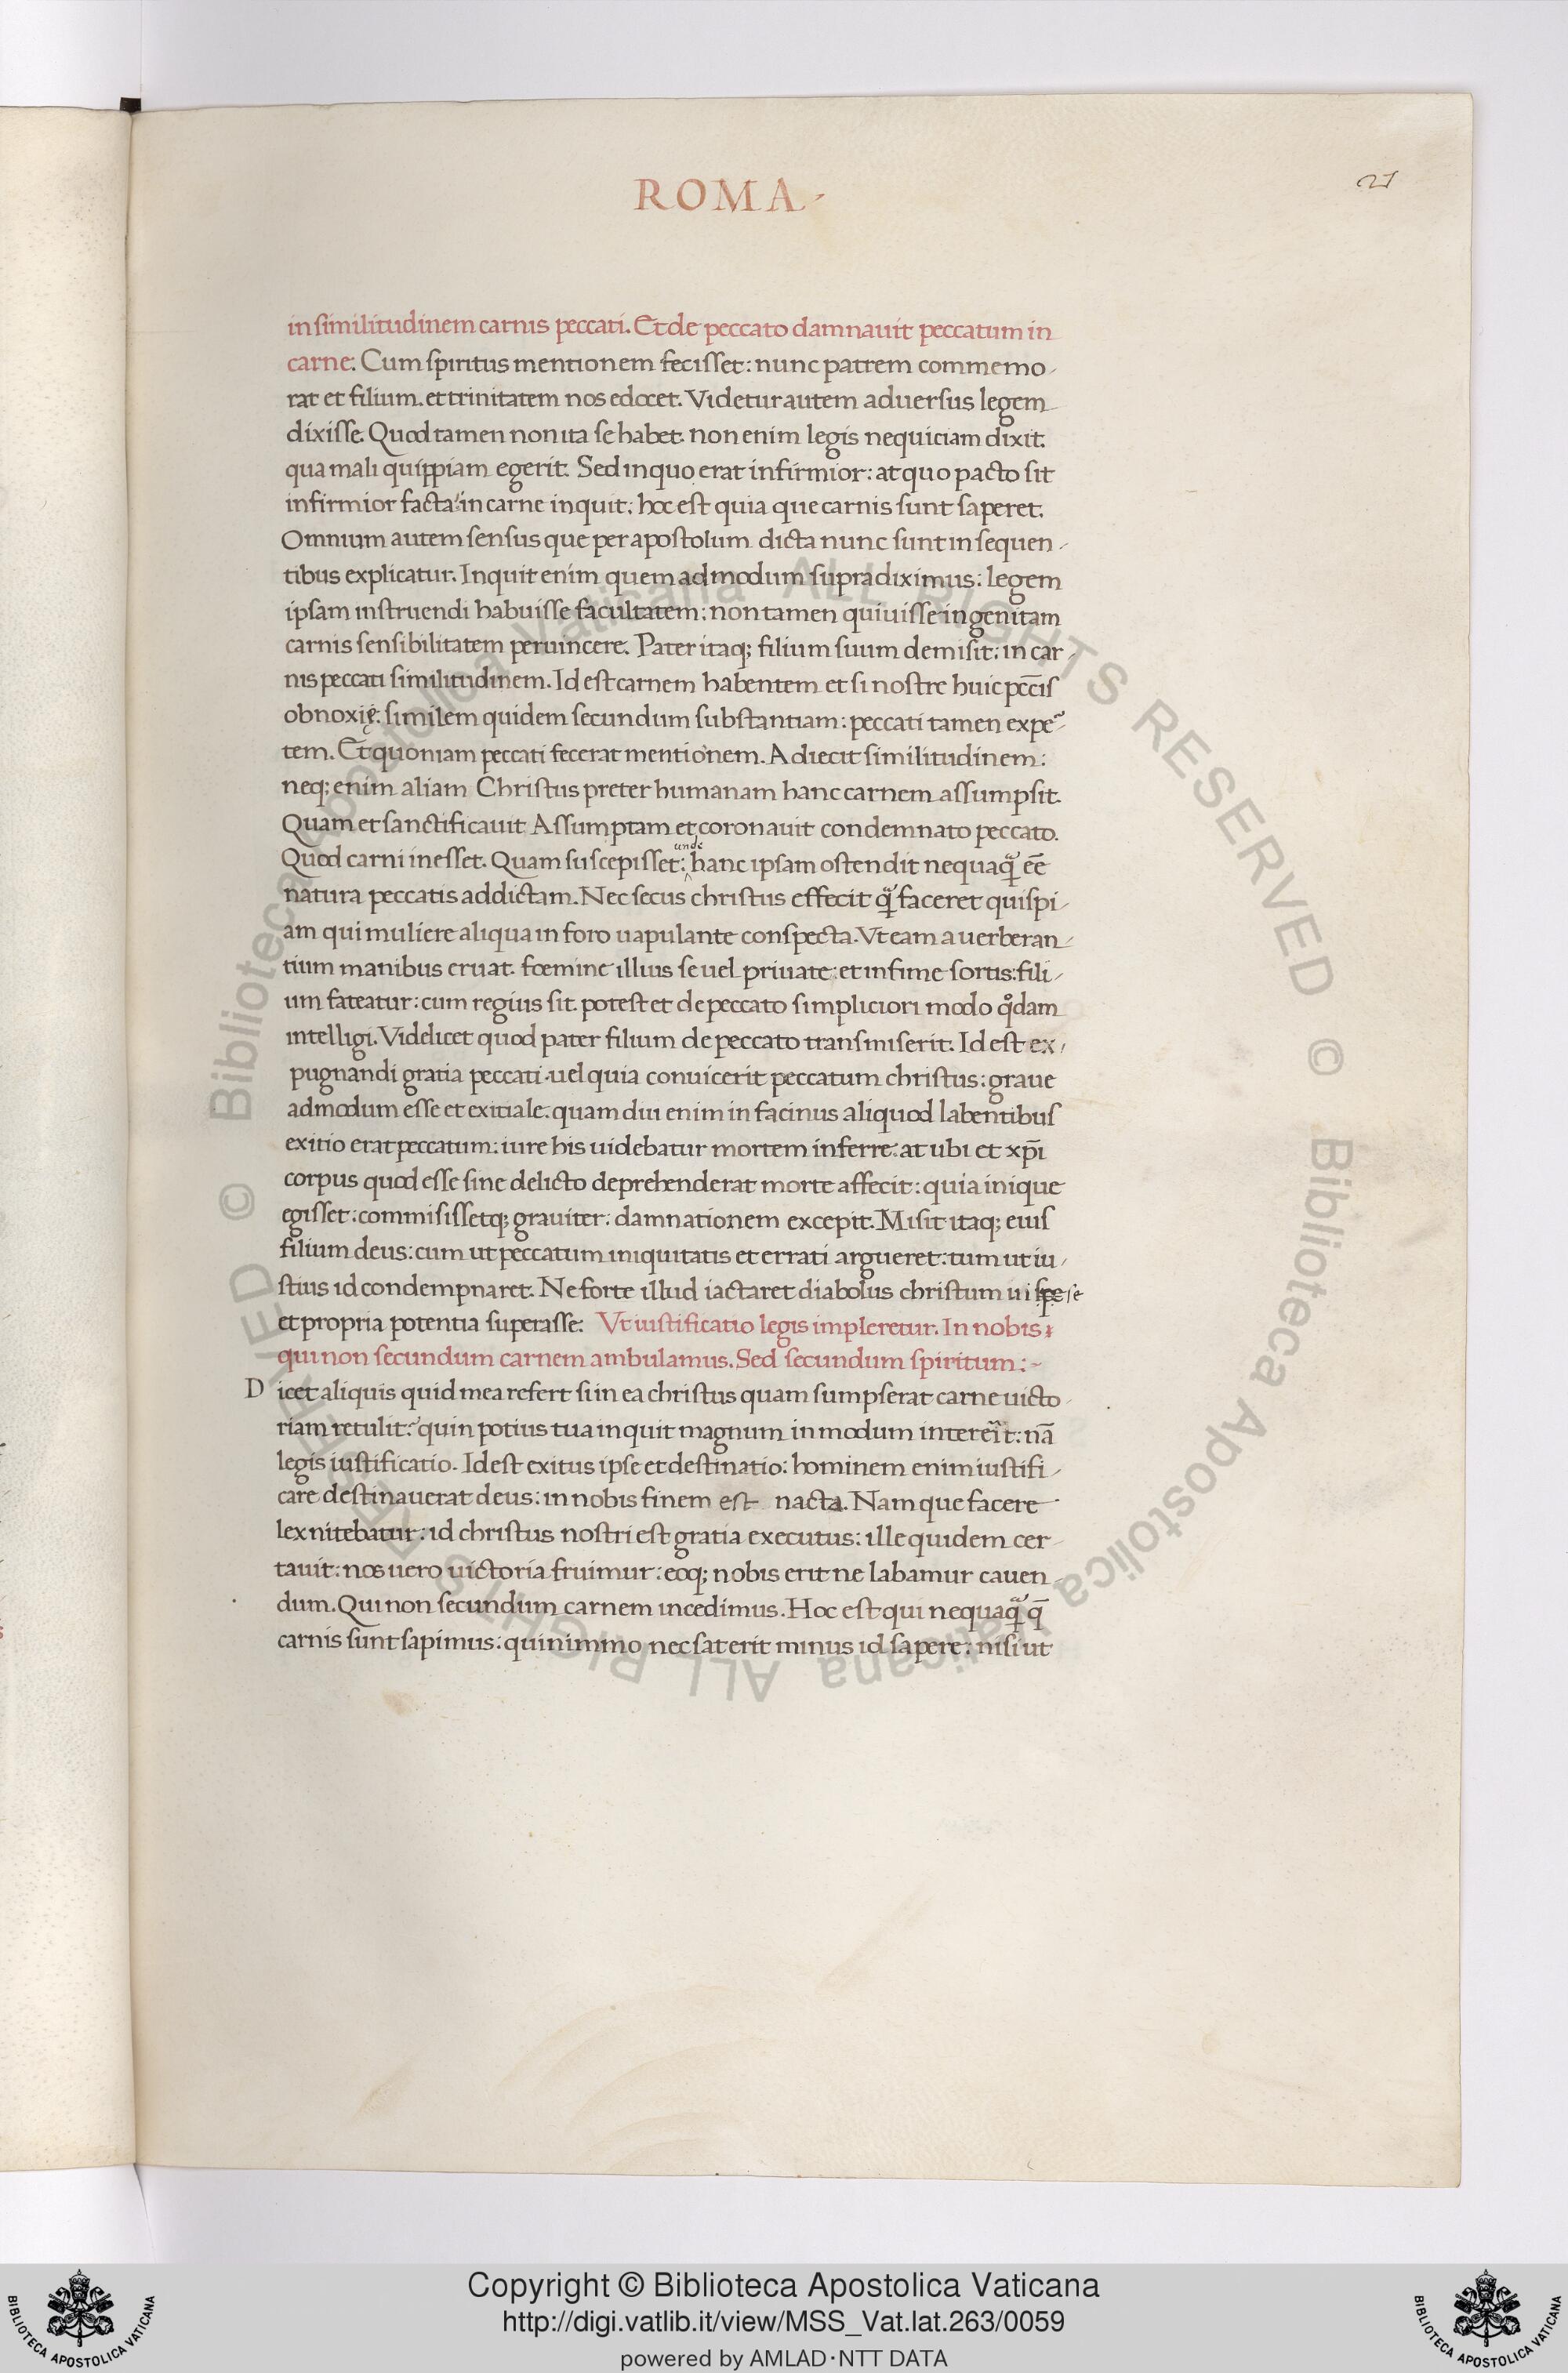 ROMA
21
in similitudinem carnis peccati. Et de peccato damnauit peccatum in
carne. Cum spiritus mentionem fecisset: nunc patrem commemo-
rat et filium. et trinitatem nos edocet. Videtur autem aduersus legem
dixisse. Quod tamen non ita se habet. non enim legis nequiciam dixit.
qua mali quippiam egerit. Sed in quo erat infirmior: at quo pacto sit
infirmior facta? in carne inquit: hoc est quia que carnis sunt saperet.
Omnium autem sensus que per apostolum dicta nunc sunt in sequen-
tibus explicatur. Inquit enim quem admodum supra diximus: legem
ipsam instruendi habuisse facultatem: non tamen quiuisse ingenitam
carnis sensibilitatem peruincere. Pater itaq; filium suum demisit: in car-
nis peccati similitudinem. Id est carnem habentem et si nostre huic pcc̄is
obnoxię: similem quidem secundum substantiam: peccati tamen expe~
tem. Et quoniam peccati fecerat mentionem. Adiecit similitudinem:
neq; enim aliam Christus preter humanam hanc carnem assumpsit.
Quam et sanctificauit Assumptam et coronauit condemnato peccato.
unde
Quod carni inesset. Quam suscepisset: hanc ipsam ostendit nequaq̃ eē
natura peccatis addictam. Nec secus christus effecit q̃ faceret quispi-
am qui muliere aliqua in foro uapulante conspecta. Vt eam a uerberan-
tium manibus eruat. foemine illius se uel priuate: et infime sortis: fili-
um fateatur: cum regius sit. potest et de peccato simpliciori modo qͦdam
intelligi. Videlicet quod pater filium de peccato transmiserit. Id est ex-
pugnandi gratia peccati. uel quia conuicerit peccatum christus: graue
admodum esse et exitiale. quam diu enim in facinus aliquod labentibus
exitio erat peccatum: iure his uidebatur mortem inferre: at ubi et xp̄i
corpus quod esse sine delicto deprehenderat morte affecit: quia inique
egisset: commisissetq; grauiter: damnationem excepit. Misit itaq; eius
filium deus: cum ut peccatum iniquitatis et errati argueret: tum ut iu-
stius id condempnaret. Ne forte illud iactaret diabolus christum ui se
et propria potentia superasse: Vt iustificatio legis impleretur. In nobis:
qui non secundum carnem ambulamus. Sed secundum spiritum:~
D icet aliquis quid mea refert si in ea christus quam sumpserat carne uicto-
riam retulit? quin potius tua inquit magnum in modum intererit: nā
legis iustificatio. Id est exitus ipse et destinatio: hominem enim iustifi-
care destinauerat deus: in nobis finem est nacta. Nam que facere
lex nitebatur: id christus nostri est gratia executus: ille quidem cer-
tauit: nos uero uictoria fruimur: eoq; nobis erit ne labamur cauen-
dum. Qui non secundum carnem incedimus. Hoc est qui nequaq̃ q̄
carnis sunt sapimus: quinimmo nec sat erit minus id sapere: nisi ut
© Biblioteca Apostolica Vaticana ALL RIGHTS RESERVED © Biblioteca Apostolica Vaticana ALL RIGHTS RESERVED
Copyright © Biblioteca Apostolica Vaticana
http://digi.vatlib.it/view/MSS_Vat.lat.263/0059
powered by AMLAD·NTT DATA
BIBLIOTECA APOSTOLICA VATICANA
BIBLIOTECA APOSTOLICA VATICANA